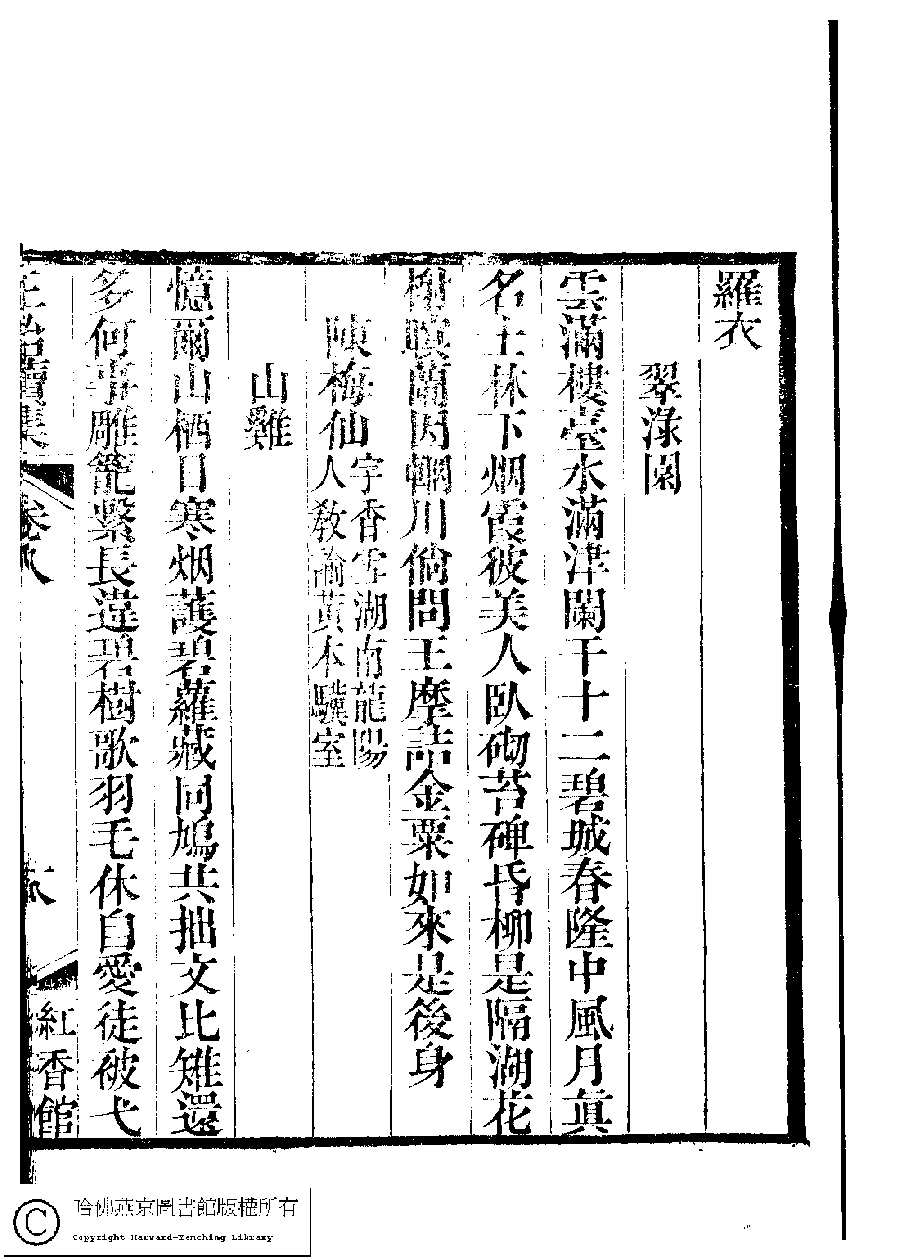 羅衣
翠淥園
雲滿樓臺水滿津闌干十二碧城春隆中風月眞
名士林下烟霞彼美人臥砌苔碑昏柳是隔湖花
榭嘆蘭因輞川倘問王摩詰金粟如來是後身
陳梅仙字香雪湖南龍陽
人教諭黃本驥室
山雞
憶爾山栖日寒烟護碧蘿藏同鳩共拙文比雉還
多何事雕籠繫長違碧樹歌羽毛休自愛徒被弋
續集
卷八
紅香館
哈佛燕京圖書館版權所有
Copyright Harvard-Yenching Library